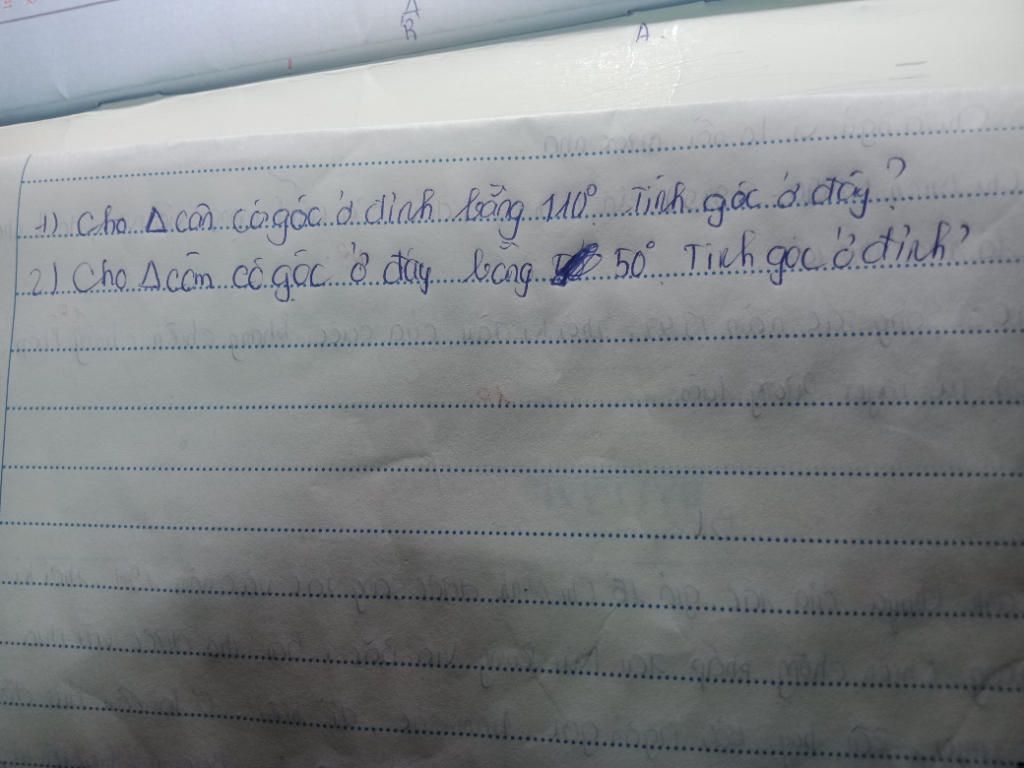 Δ
R
A.
1) Cho Δ cân có góc ở đỉnh bằng 110° Tính góc ở đáy?
2) Cho Δ cân có góc ở đáy bằng 50° Tính góc ở đỉnh?